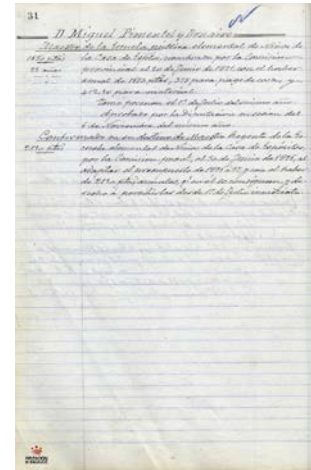 31
D. Miguel Pimentel y Donaire
Maestro de la Escuela pública elemental de Niños de
1875 ptas la Casa de Expósitos, nombrado por la Comisión
provincial el 20 de Junio de 1891 con el haber
anual de 1875 ptas, 375 para pago de casa y
para material
Tomó posesión el 1º de Julio del mismo año
Aprobado por la Diputación en sesión del
6 de Noviembre del mismo año
Confirmado en su destino de Maestro Regente de la Es
cuela elemental de Niños de la Casa de Expósitos,
por la Comisión provl, el 30 de Junio de 1896, al
adaptar el presupuesto de 1896 a 97, y con el haber
de ptas anuales, que en él se consignan, y de
recho a percibirlas desde 1º de Julio inmediato
DIPUTACIÓN
DE BADAJOZ